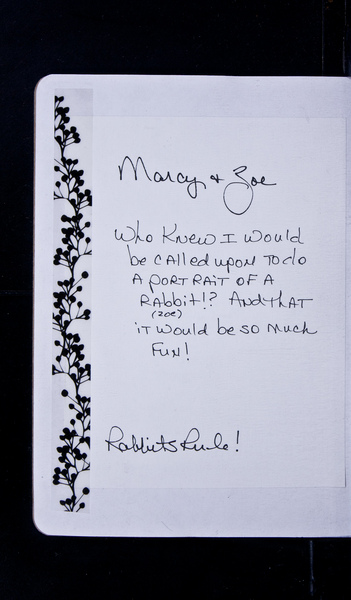 Marcy + Zoe
Who Knew I would
be called upon To do
A PORTRAIT OF A
RAbbit!? And THAT
(zoe)
it would be so much
Fun!
Rabbits Rule!